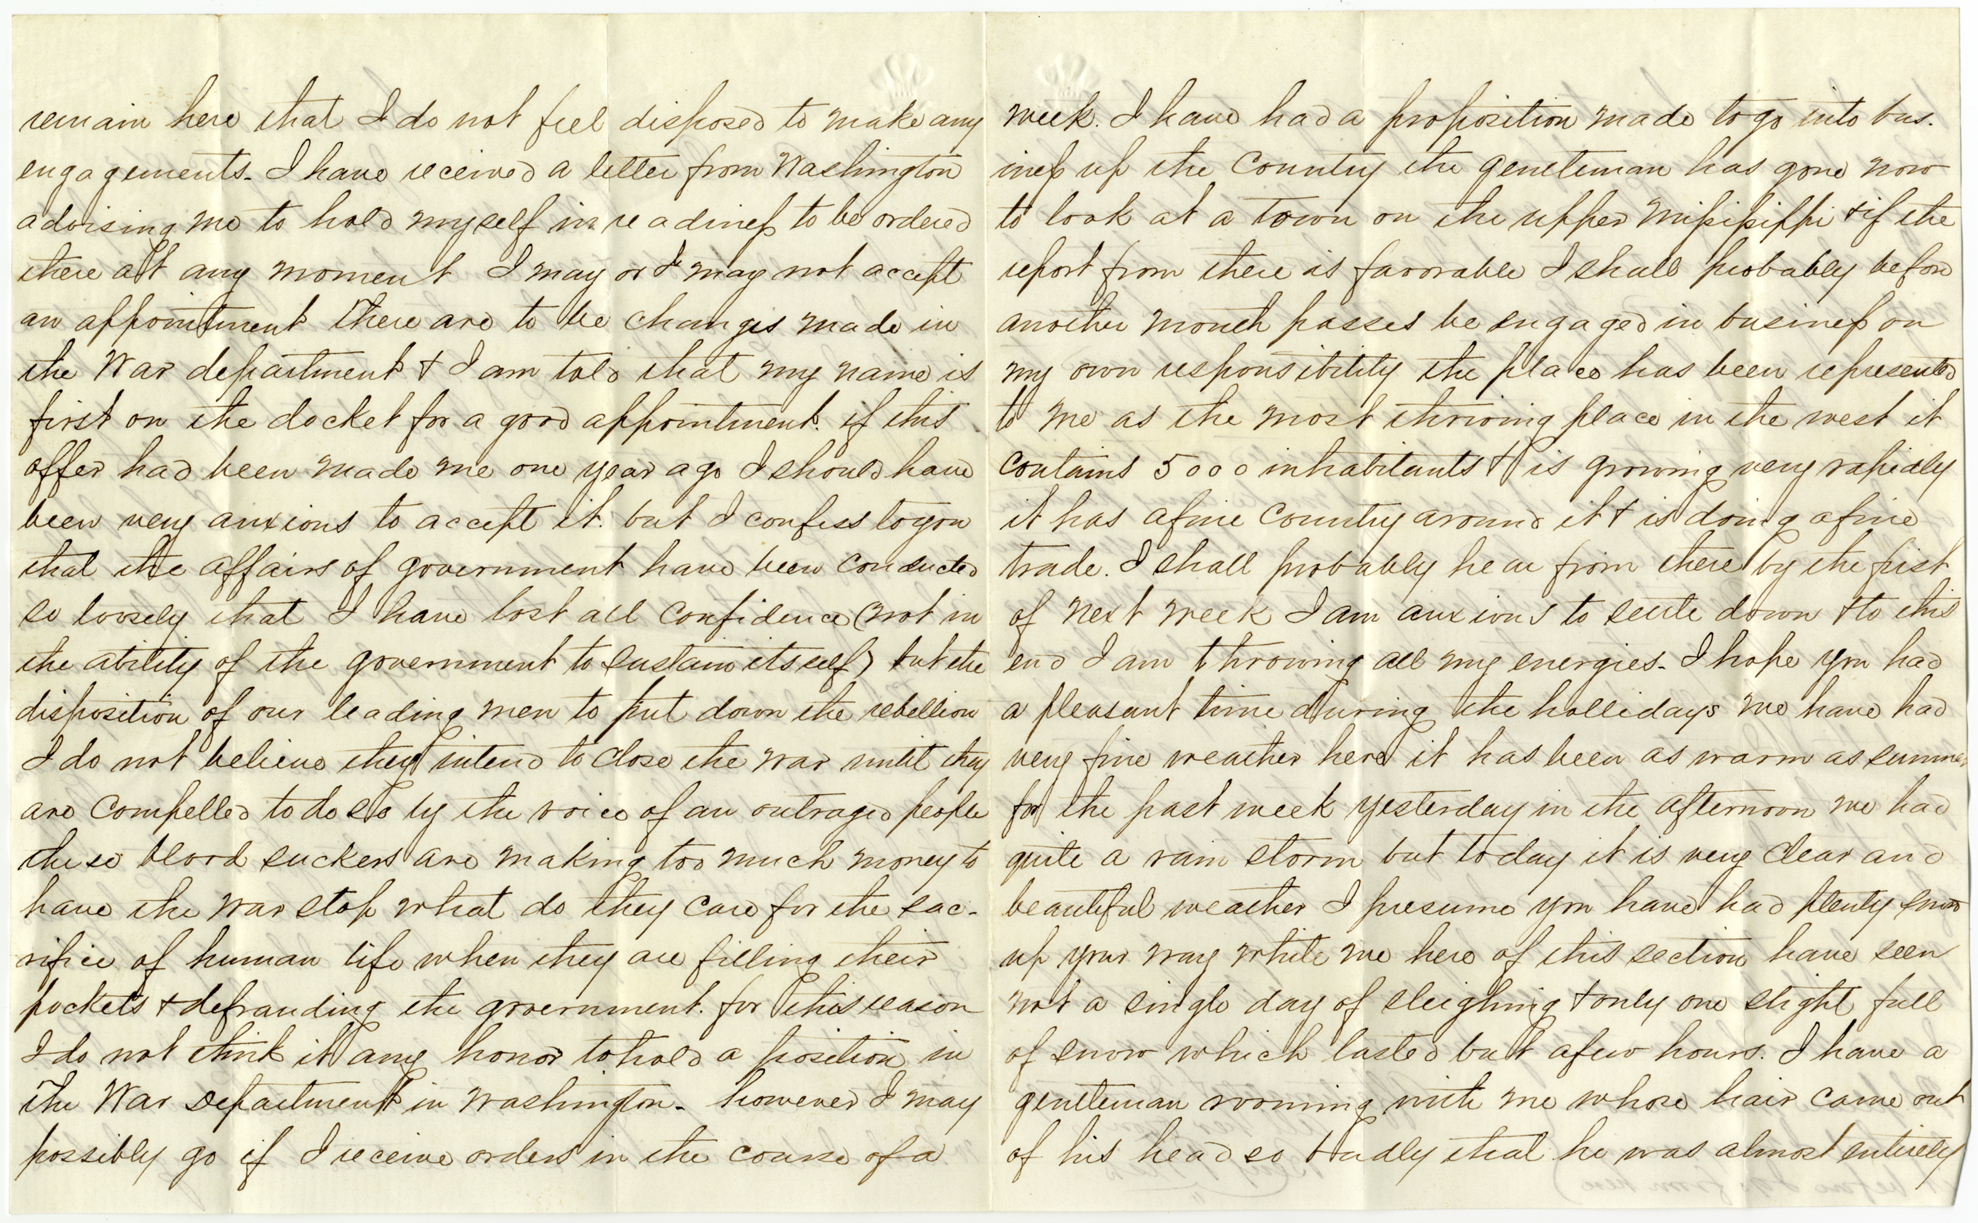 remain here that I do not feel disposed to make any
engagements. I have received a letter from Washington
advising me to hold myself in readiness to be ordered
there att any moment I may or I may not accept
an appointment There are to be changes made in
the War department & I am told that my name is
first on the docket for a good appointment. if this
offer had been made me one year ago I should have
been very anxious to accept it. but I confess to you
that the affairs of government have been conducted
so loosely that I have lost all confidence (not in
the ability of the government to sustain itself) but the
disposition of our leading men to put down the rebellion
I do not believe they intend to close the war until they
are compelled to do so by the voice of an outraged people
these blood suckers are making too much money to
have the war stop what do they care for the sac-
rifice of human life when they are filling their
pockets & defrauding the government. for this reason
I do not think it any honor to hold a position in
the War Department in Washington. however I may
possibly go if I receive orders in the course of a
week. I have had a proposition made to go into bus.
iness up the Country the gentleman has gone now
to look at a town on the upper Missisippi & if the
report from there is favorable I shall probably before
another month passes be engaged in business on
my own responsibility the place has been represented
to me as the most thriving place in the west it
contains 5000 inhabitants & is growing very rapidly
it has a fine country around it & is doing a fine
trade. I shall probably hear from there by the first
of next week I am anxious to settle down & to this
end I am throwing all my energies. I hope you had
a pleasant time during the hollidays we have had
very fine weather here it has been as warm as summer
for the past week yesterday in the afternoon we had
quite a rain storm but today it is very clear and
beautiful weather I presume you have had plenty snow
up your way while we here of this section have seen
not a single day of sleighing & only one slight fall
of snow which lasted but a few hours. I have a
gentleman rooming with me whose hair came out
of his head so badly that he was almost entirely